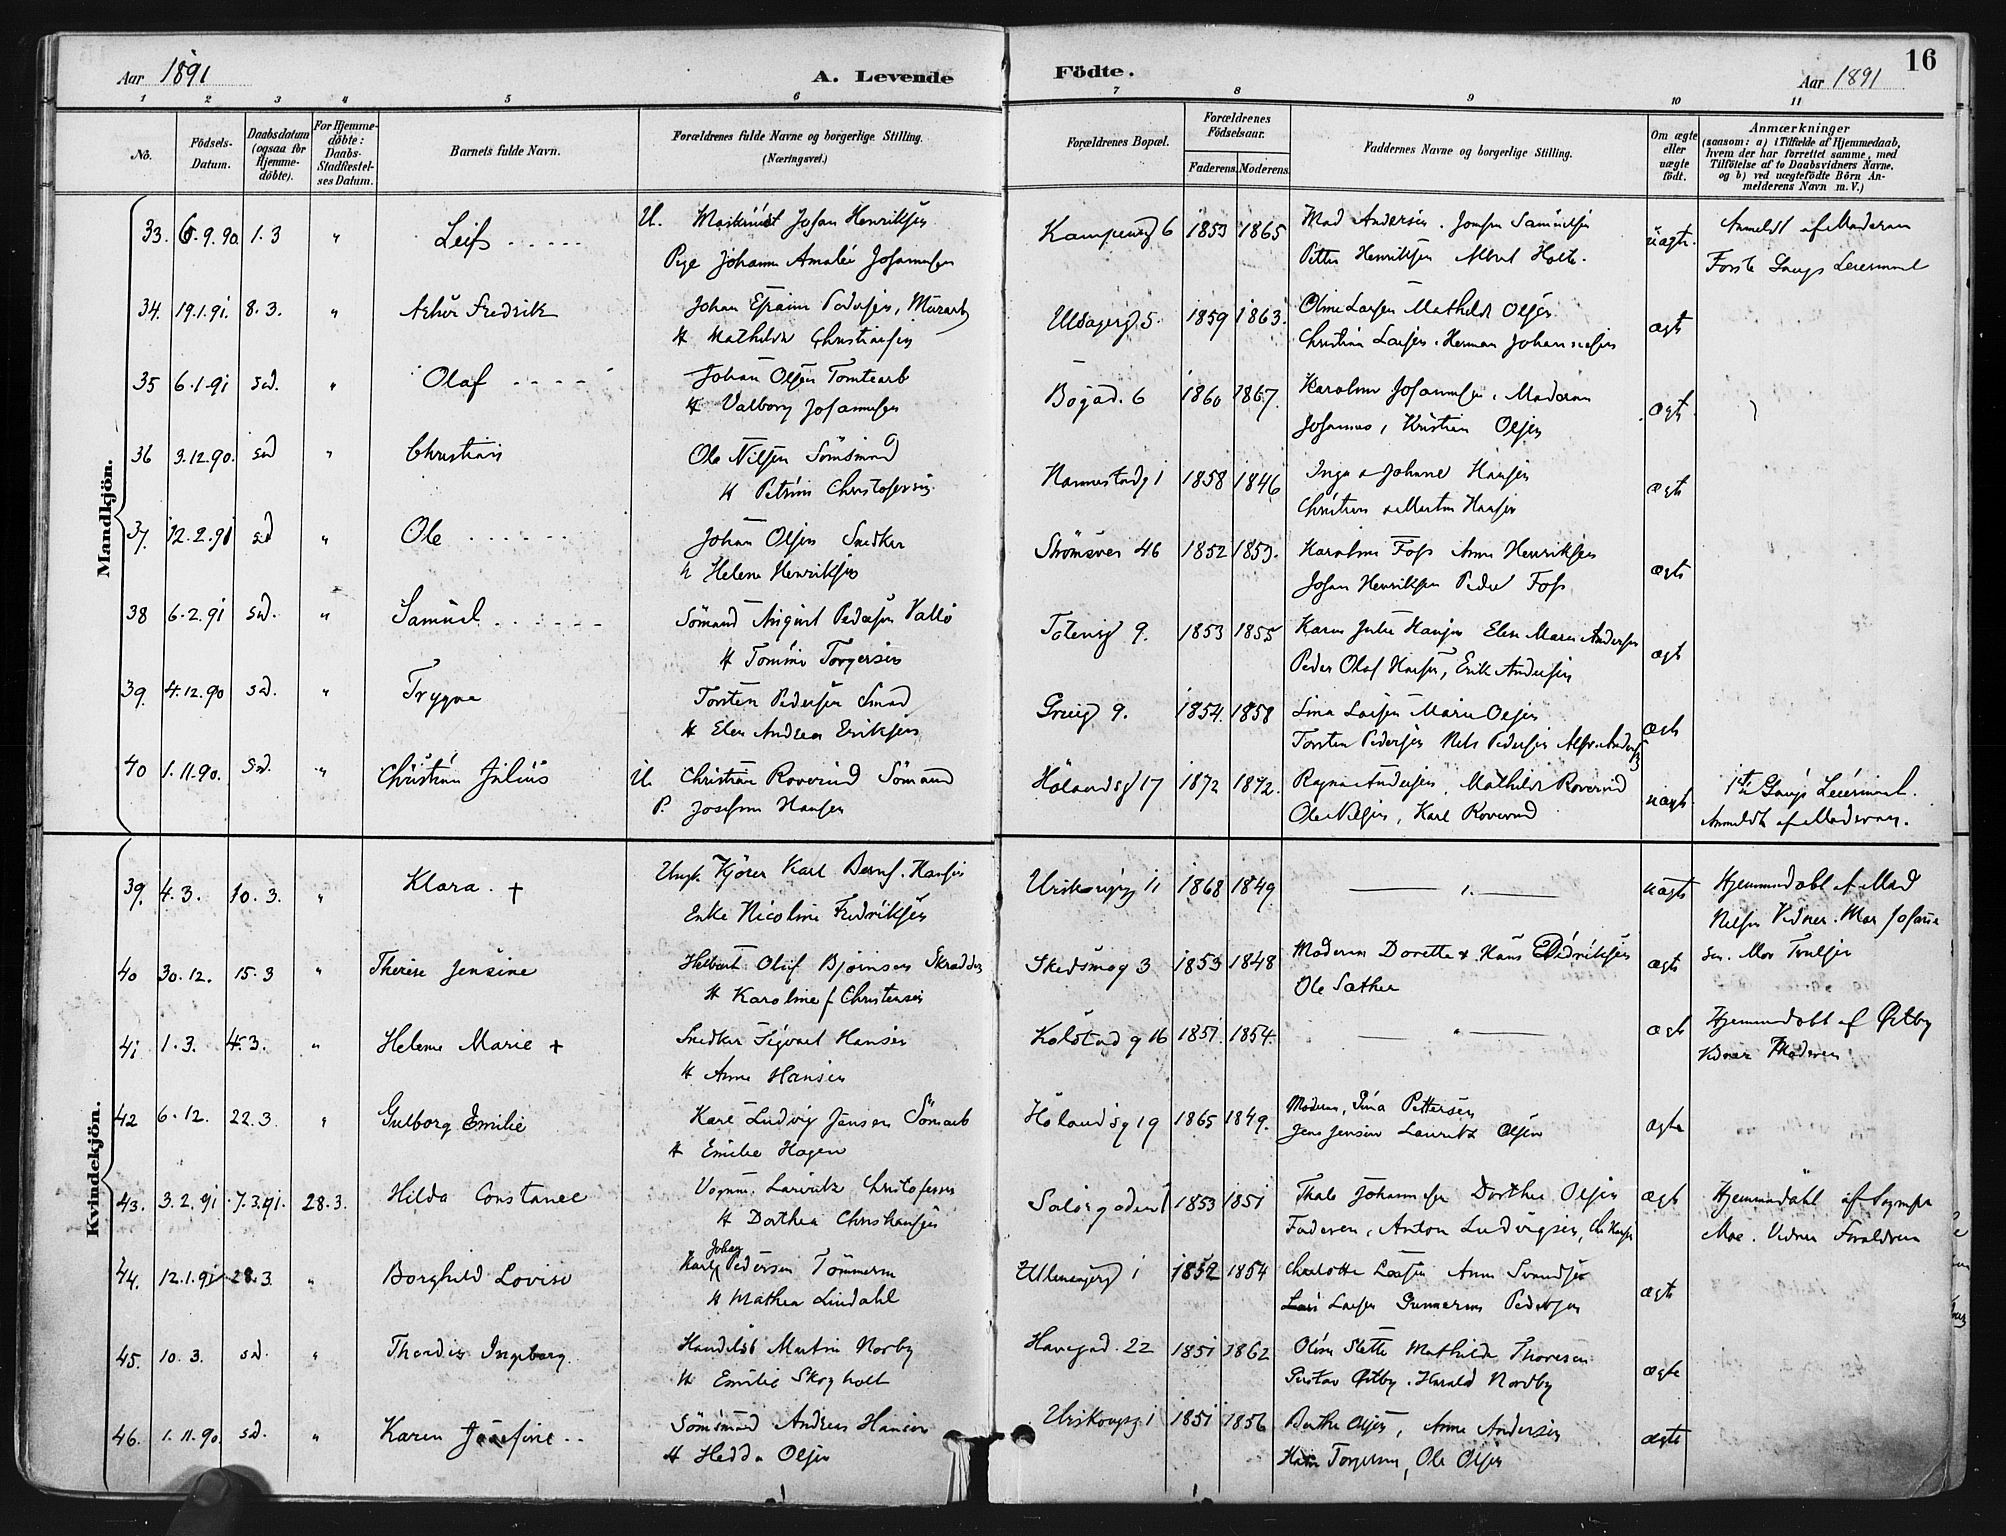 16
Aar 1891
A. Levende Födte.
Aar 1891
1 2 3 4 5 6 7 8 9 10 11
No.
Födsels-Datum.
Daabsdatum (ogsaa for Hjemme-döbte).
For Hjemme-döbte: Daabs-Stadfæstel-ses Datum.
Barnets fulde Navn.
Forældrenes fulde Navne og borgerlige Stilling. (Næringsvei.)
Forældrenes Bopæl.
Forældrenes Födselsaar.
Faderens. Moderens.
Faddernes Navne og borgerlige Stilling.
Om ægte eller uægte födt.
Anmærkninger
(saasom: a) i Tilfælde af Hjemmedaab, hvem der har forrettet samme, med Tilföielse af to Daabsvidners Navne, og b) ved uægtefödte Börn An-melderens Navn m. V.)
Mandkjön.
33. 6.9.90. 1.3 " Leif U. Maskinist Johan Henriksen Kampeng 6 1853 1865 Mad Andersen. Samuelsen uægte. Anmeldt af Moderen
Pige Johanne Amalie Johannesen Petter Henriksen Albert Holte. Første Gangs Leiermaal
34. 19.1.91. 8.3. " Arthur Fredrik Johan Efraim Pedersen, Murarb 5. 1859 1863. Larsen Mathilde Olsen ægte
H Mathilde Christiansen Christian Larsen. Herman Johannesen
35 6.1.91 sd. " Olaf Johan Olsen Tomtearb Bøgad. 6 1860 1867. Karoline Johannesen, Moderen ægte
H Valborg Johannesen Johannes, Kristian Olsen
36 3.12.90. sd " Christian Ole Nilsen Sömand Hannestadg 1 1858 1846 Inga & Johanne Hansen ægte
H Petrine Christofersen Christian & Martin Hansen
37. 12.2.91 sd " Ole Johan Olsen Snedker Strömsvei 46 1852 1853. Karoline Foss Anne Henriksen ægte
H Helene Henriksen Johan Henriksen Peder Foss
38 6.2.91 sd. " Samuel Sömand August Pedersen Vallö Totensg 9. 1853 1855 Karen Julie Hansen Elen Marie Andersen ægt
H Tomine Torgersen Peder Olaf Hansen, Erik Andersen
39. 4.12.90 sd. " Trygve Torsten Pedersen Smed Griegg 9. 1854. 1858 Lina Larsen Marie Olsen ægt
H Elen Andrea Eriksen Torsten Pedersen Nels Pedersen
40 1.11.90. sd. " Christian Julius U. Christian Roverud Sömand Hölandsg 17 1872 1872. Ragna Andersen, Mathilde Roverud uægt 1ste Gangs Leiermaal.
P. Josefine Hansen Ole Nilsen, Karl Roverud Anmeldt af Moderen.
Kvindekjön.
39. 4.3. 10.3. " Klara. + Ungk. Kjörer Karl Bernh. Hansen Urskougsg 11 1868 1849. " uægte Hjemmedøbt af Mad
Enke Nicoline Fredriksen Nilsen
40 30.12. 15.3 " Therese Jensine Oluf Björnsen Skrædder Skedsmog 3 1853 1848 Moderen Dorette & Hans Didriksen ægte
H Karoline f Christensen Ole Sæther
41 1.3. 4.3. " Helene Marie + Snedker Sigvart Hansen Kolstadg 16 1851 1854. " ægt Hjemmedøbt af Østby
H Anne Hansen Vidner Moderen
42 6.12. 22.3. " Gulborg Emilie Karl Ludvig Jensen Sömarb Hölandsg 19 1865 1849. Moderen, Lina Pettersen ægte
H Emilie Hagen Jens Jensen Lauritz Olsen
43. 3.2.91 7.3.91. 28.3. Hilda Constance Vognm. Lauritz Christofersen Solörgaden 1 1853 1851 Thale Johannesen Dorthea Olsen ægt Hjemmedøbt af
H Dorthea Christiansen Faderen, Anton Ludvigsen, Moe. Vidner Forældrene
44. 12.1.91 28.3. " Borghild Lovise Karl Johan Pedersen Tömmerm Ullensagerg 1 1852 1854 Charlotte Larsen Anne Svendsen ægte
H Mathea Lindahl Larsen Gunnerius Pedersen
45. 10.3. sd. " Thordis Ingeborg. Handelsb Martin Norby Havegad. 22 1851 1862 Oline Slette Mathilde Thoresen ægte
H Emilie Skogholt Gustav Østby. Harald Nordby
46. 1.11.90. sd. " Karen Josefine Sömand Andreas Hansen Urskougsg 1 1851 1856 Berthe Olsen, Anne Andersen ægte
H Hedda Olsen Hans Torgersen, Ole Olsen